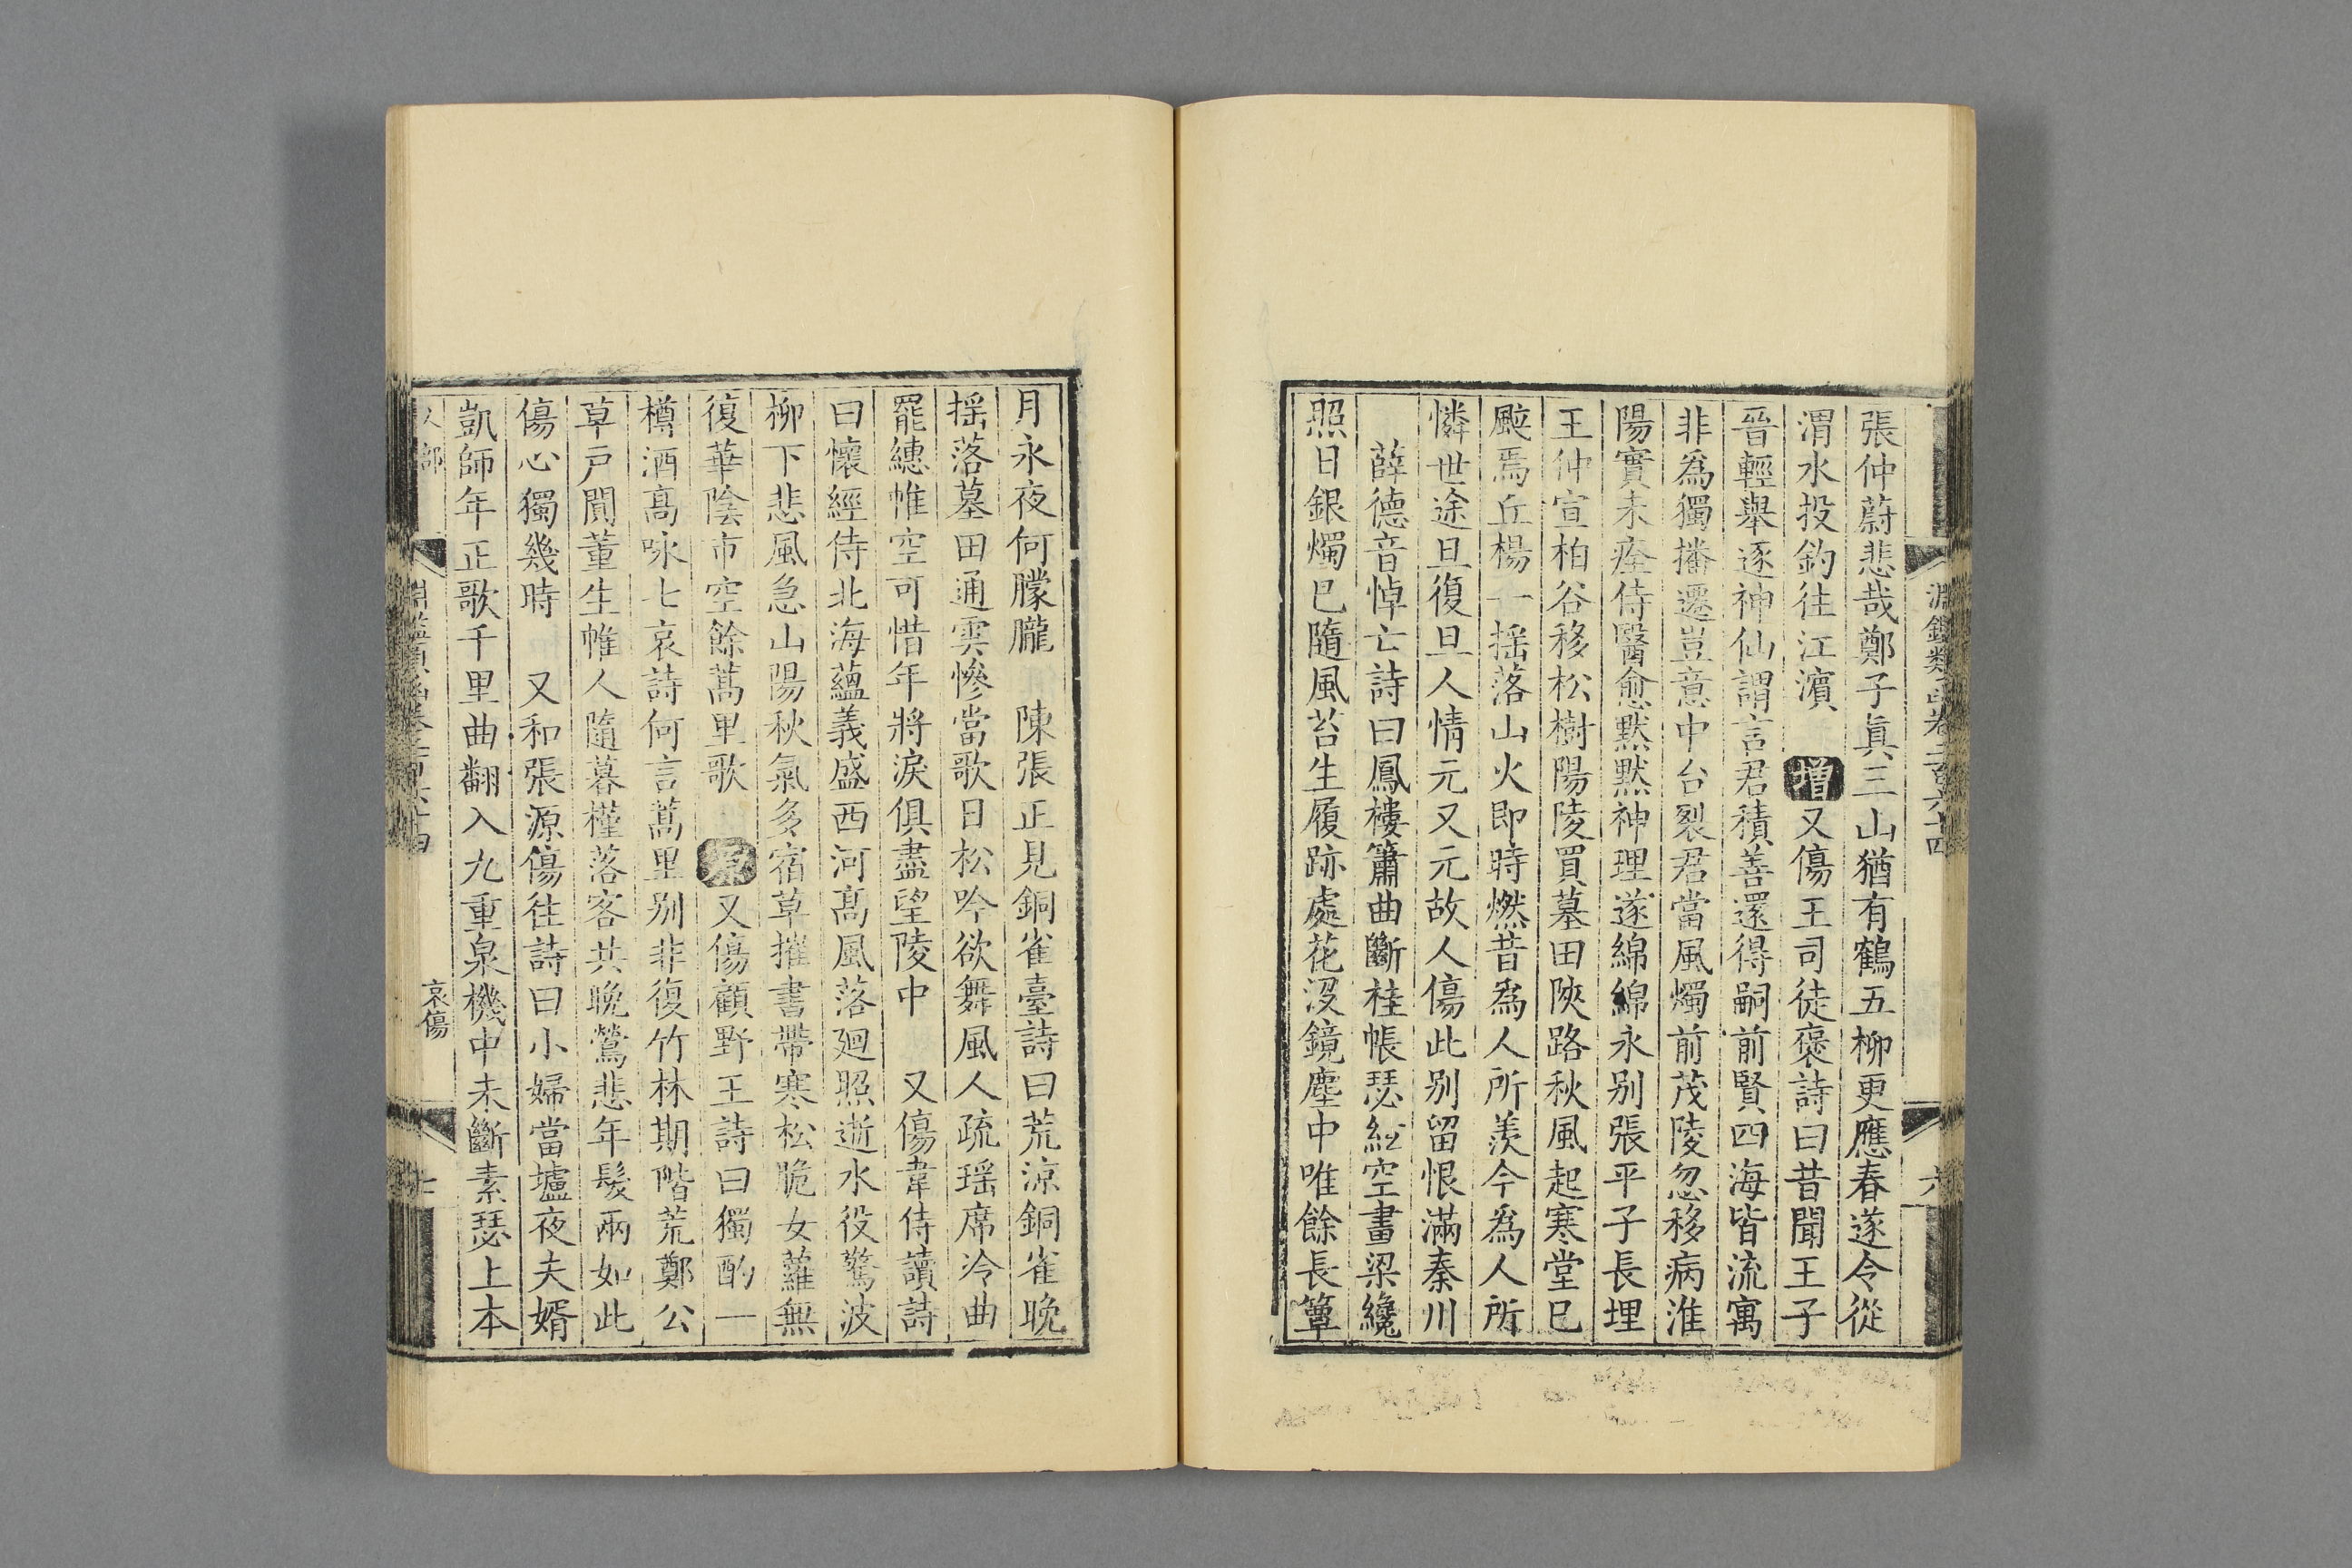 張仲蔚悲哉鄭子眞三山猶有鶴五柳更應春遂令從
渭水投釣往江濵　增又傷王司徒褒詩曰昔聞王子
晉輕舉逐神仙謂言君積善還得嗣前賢四海皆流寓
非爲獨播遷豈意中台裂君當風燭前茂陵忽移病淮
陽實未痊侍醫愈默默神理遂綿綿永别張平子長埋
王仲宣柏谷移松樹陽陵買墓田陜路秋風起寒堂已
颰焉丘楊一搖落山火即時燃昔爲人所羨今爲人所
憐世途旦復旦人情元又元故人傷此别留恨滿秦川
薛德音悼亡詩曰鳳樓簫曲斷桂帳瑟絃空畫梁纔
照日銀燭已隨風苔生履跡處花沒鏡塵中唯餘長簟
月永夜何朦朧　陳張正見銅雀臺詩曰荒涼銅雀晚
搖落墓田通雲慘當歌日松吟欲舞風人疏瑤席冷曲
罷繐帷空可惜年將淚俱盡望陵中　又傷韋侍讀詩
曰懷經侍北海蘊義盛西河髙風落廻照逝水役驚波
柳下悲風急山陽秋氣多宿草摧書帶寒松脆女蘿無
復華陰市空餘蒿里歌　原又傷顧野王詩曰獨酌一
樽酒高咏七哀詩何言蒿里别非復竹林期階荒鄭公
草戸闃董生帷人隨暮槿落客共晚鶯悲年髮兩如此
傷心獨幾時　又和張源傷往詩曰小婦當壚夜夫婿
凱師年正歌千里曲翻入九重泉機中未斷素瑟上本
人部
哀傷